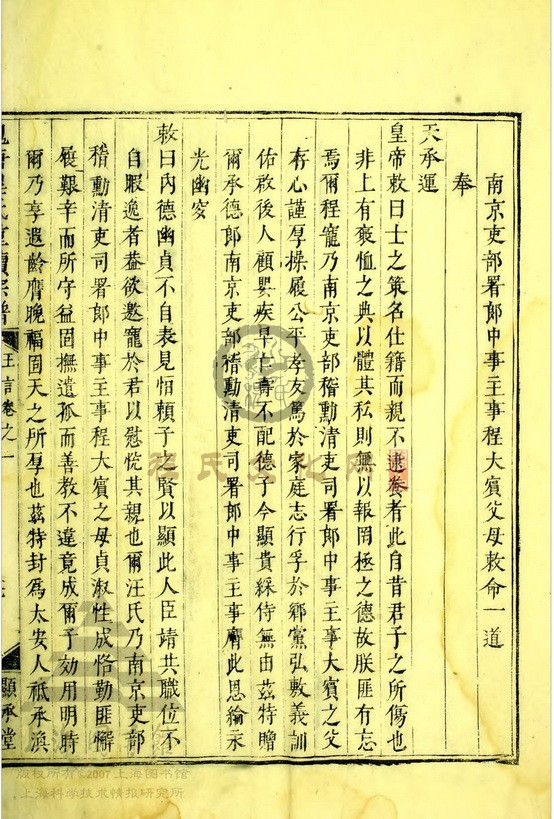 南京吏部署郎中事主事程大賓父母敕命一道
奉
天承運
皇帝敕曰士之策名仕籍而親不逮養者此自昔君子之所傷也
非上有褒恤之典以體其私則無以報罔極之德故朕匪有忘
焉爾程寵乃南京吏部稽勳清吏司署郎中事主事大賓之父
存心謹厚操履公平孝友篤於家庭志行孚於鄉黨弘敷義訓
佑啟後人顧嬰疾早亡壽不配德子今顯貴綵侍無由茲特贈
爾承德郎南京吏部稽勳清吏司署郎中事主事膺此恩綸永
光幽穸
敕曰內德幽貞不自表見恒賴子之賢以顯此人臣靖共職位不
自暇逸者葢欲邀寵於君以慰悅其親也爾汪氏乃南京吏部
稽勳清吏司署郎中事主事程大賓之母貞淑性成恪勤匪懈
履艱辛而所守益固撫遺孤而善教不違竟成爾子効用明時
爾乃享遐齡膺晚福固天之所厚也茲特封爲太安人祇承渙
王言卷之一
顯承堂
程氏文化網
版权所有©2007上海图书馆
上海科学技术情报研究所